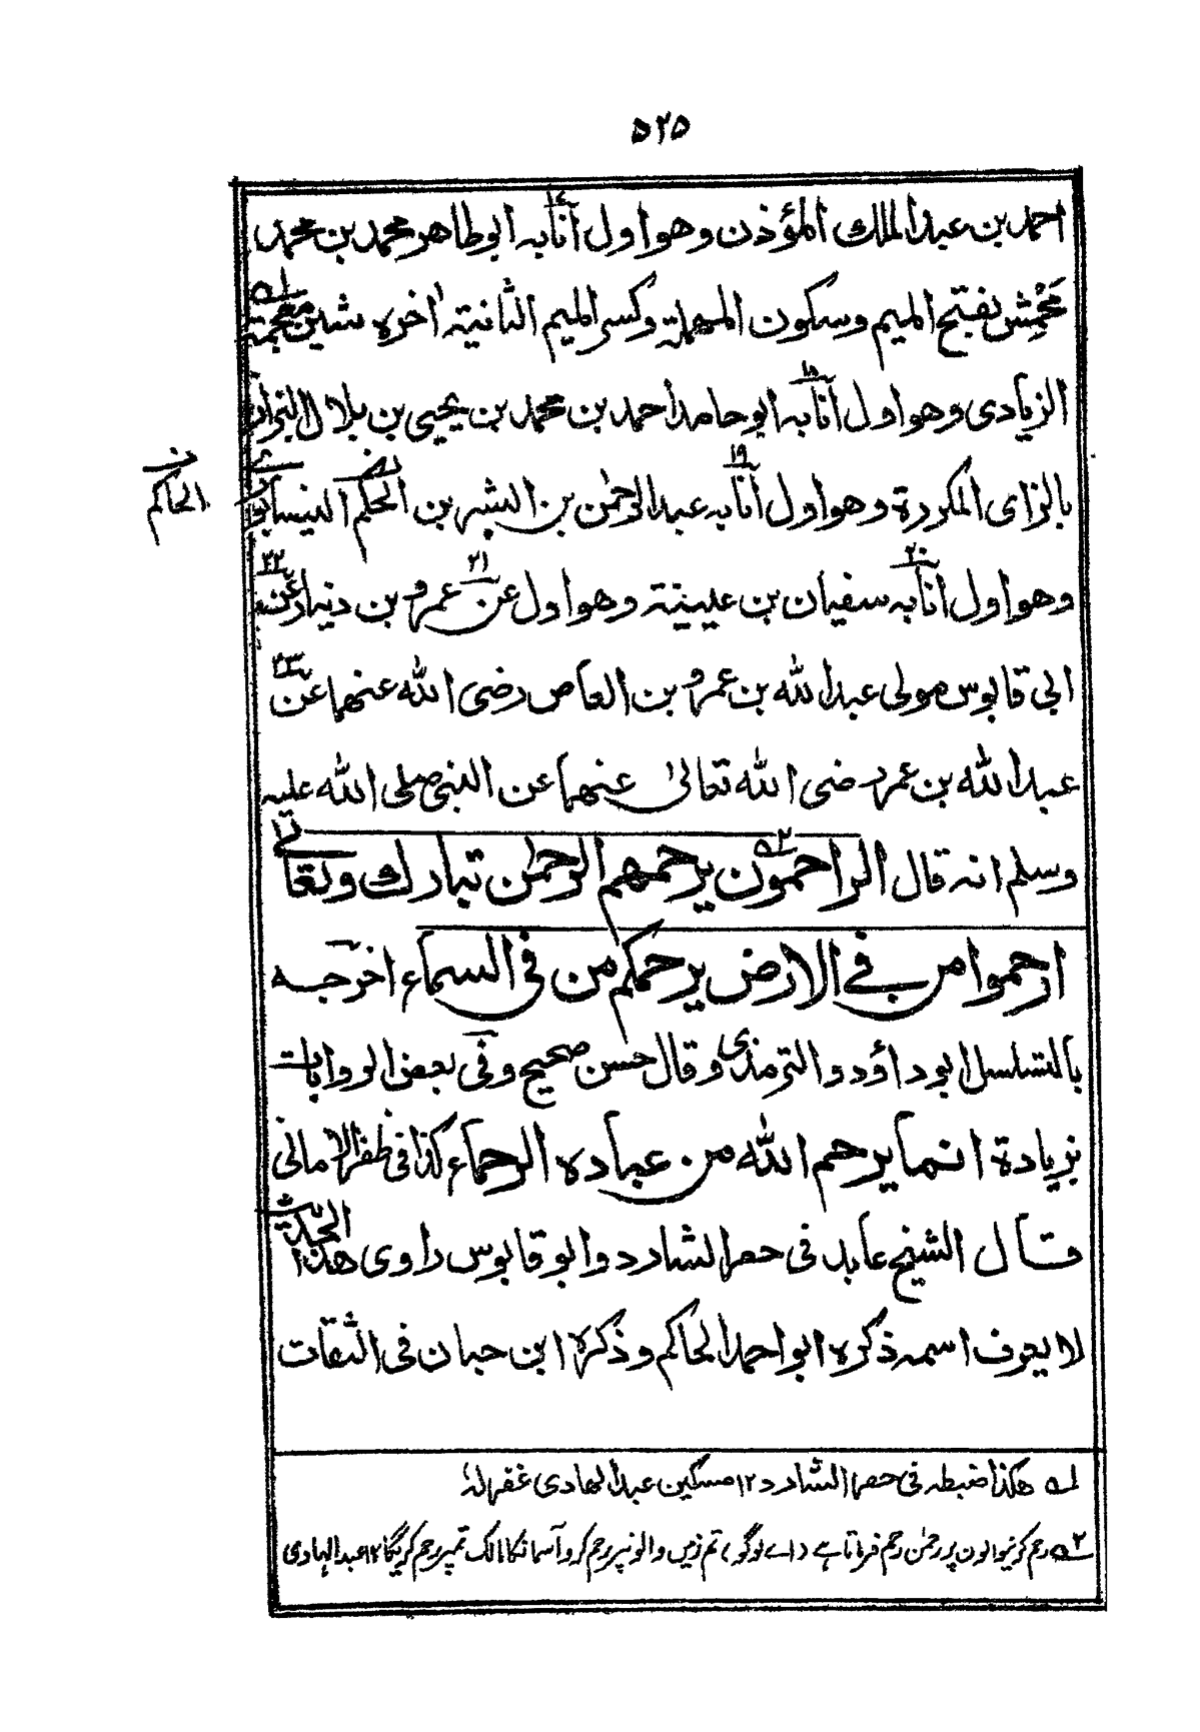 ۵۲۵
احمد بن عبد الملك المؤذن وهو اول انا به ابو طاهر محمد بن محمد
مَحْمِش بفتح الميم وسكون المهملة وكسر الميم الثانية اخره شين معجمة
الزيادى وهو اول انا به ابو حامد احمد بن محمد بن يحيى بن بلال البزاز
بالزاى المكررة وهو اول انا به عبد الرحمٰن بن البشر بن الحكم النيسابورى
الحاكم
وهو اول انا به سفيان بن عيينة وهو اول عن عمرو بن دينار عن
ابى قابوس مولى عبد الله بن عمرو بن العاص رضى الله عنهما عن
عبد الله بن عمرو رضى الله تعالىٰ عنهما عن النبى صلى الله عليه
وسلم انه قال الراحمون يرحمهم الرحمٰن تبارك وتعالى
ارحموا من فى الارض يرحمكم من فى السماء اخرجه
بالتسلسل ابو داؤد والترمذى وقال حسن صحيح وفى بعض الروايات
بزيادة انما يرحم الله من عباده الرحماء كذا فى ظفر الامانى
قال الشيخ عابد فى حصر الشارد وابو قابوس راوى هذا الحديث
لا يعرف اسمه ذكره ابو احمد الحاكم وذكره ابن حبان فى الثقات
۱ هكذا ضبطه فى حصر الشارد ۱۲ مسكين عبد الهادى غفر لهٗ
۲ رحم کرنیوالون پر رحمٰن رحم فرماتا ہے (اے لوگو) تم زمین والونپر رحم کرو آسمانکا مالک تمپر رحم کریگا ۱۲ عبد الہادی